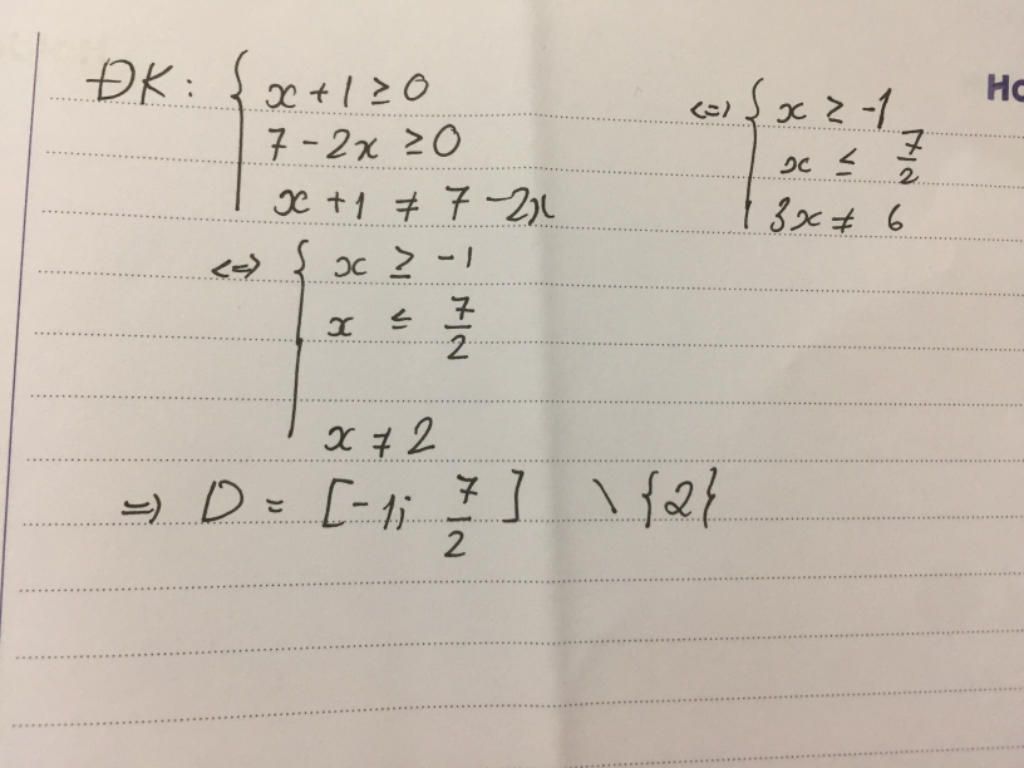 ĐK: { x + 1 ≥ 0
7 - 2x ≥ 0
x + 1 ≠ 7 - 2x
<=> { x ≥ -1
x ≤ 7/2
3x ≠ 6
<=> { x ≥ -1
x ≤ 7/2
x ≠ 2
=> D = [-1; 7/2] \ {2}